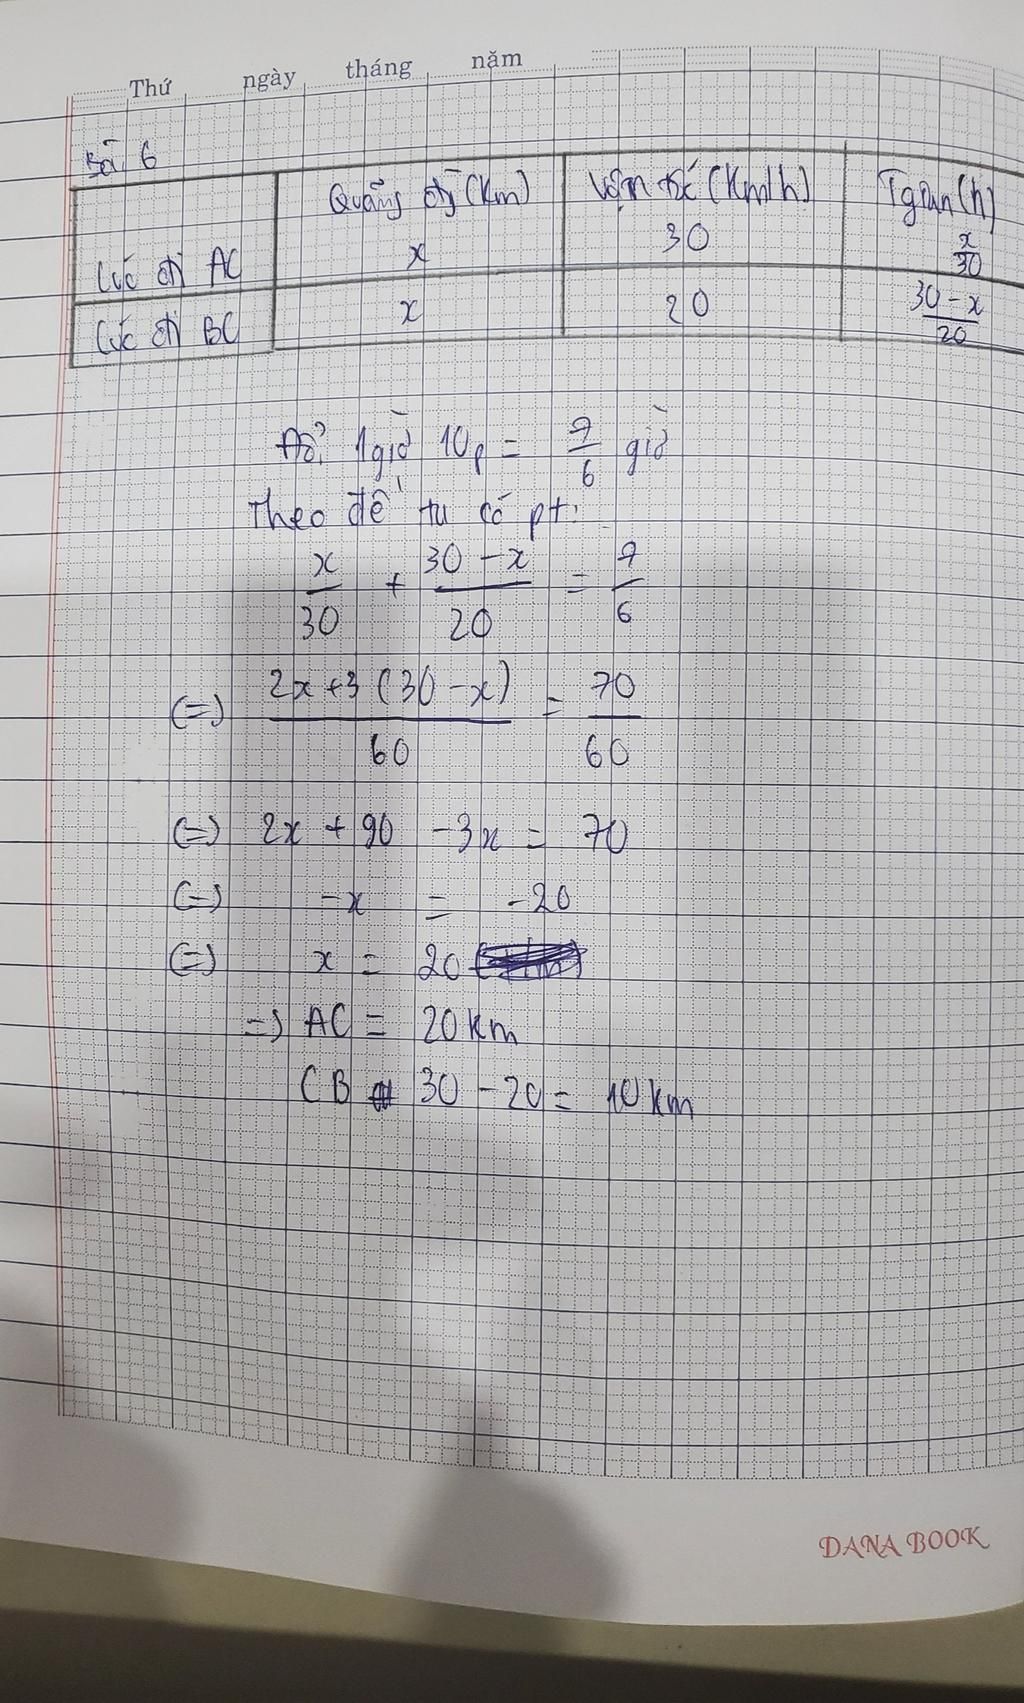 Thứ ngày tháng năm
Bài 6
Quãng đg (km) Vận tốc (km/h) Tgian (h)
Lúc đi AC x 30 x/30
Lúc đi BC x 20 30 - x/20
Đổi 1 giờ 10p = 7/6 giờ
Theo đề ta có pt:
x/30 + 30 - x/20 = 7/6
(=) 2x + 3 (30 - x)/60 = 70/60
(=) 2x + 90 - 3x = 70
(=) -x = -20
(=) x = 20
=) AC = 20 km
CB 30 - 20 = 10 km
DANA BOOK